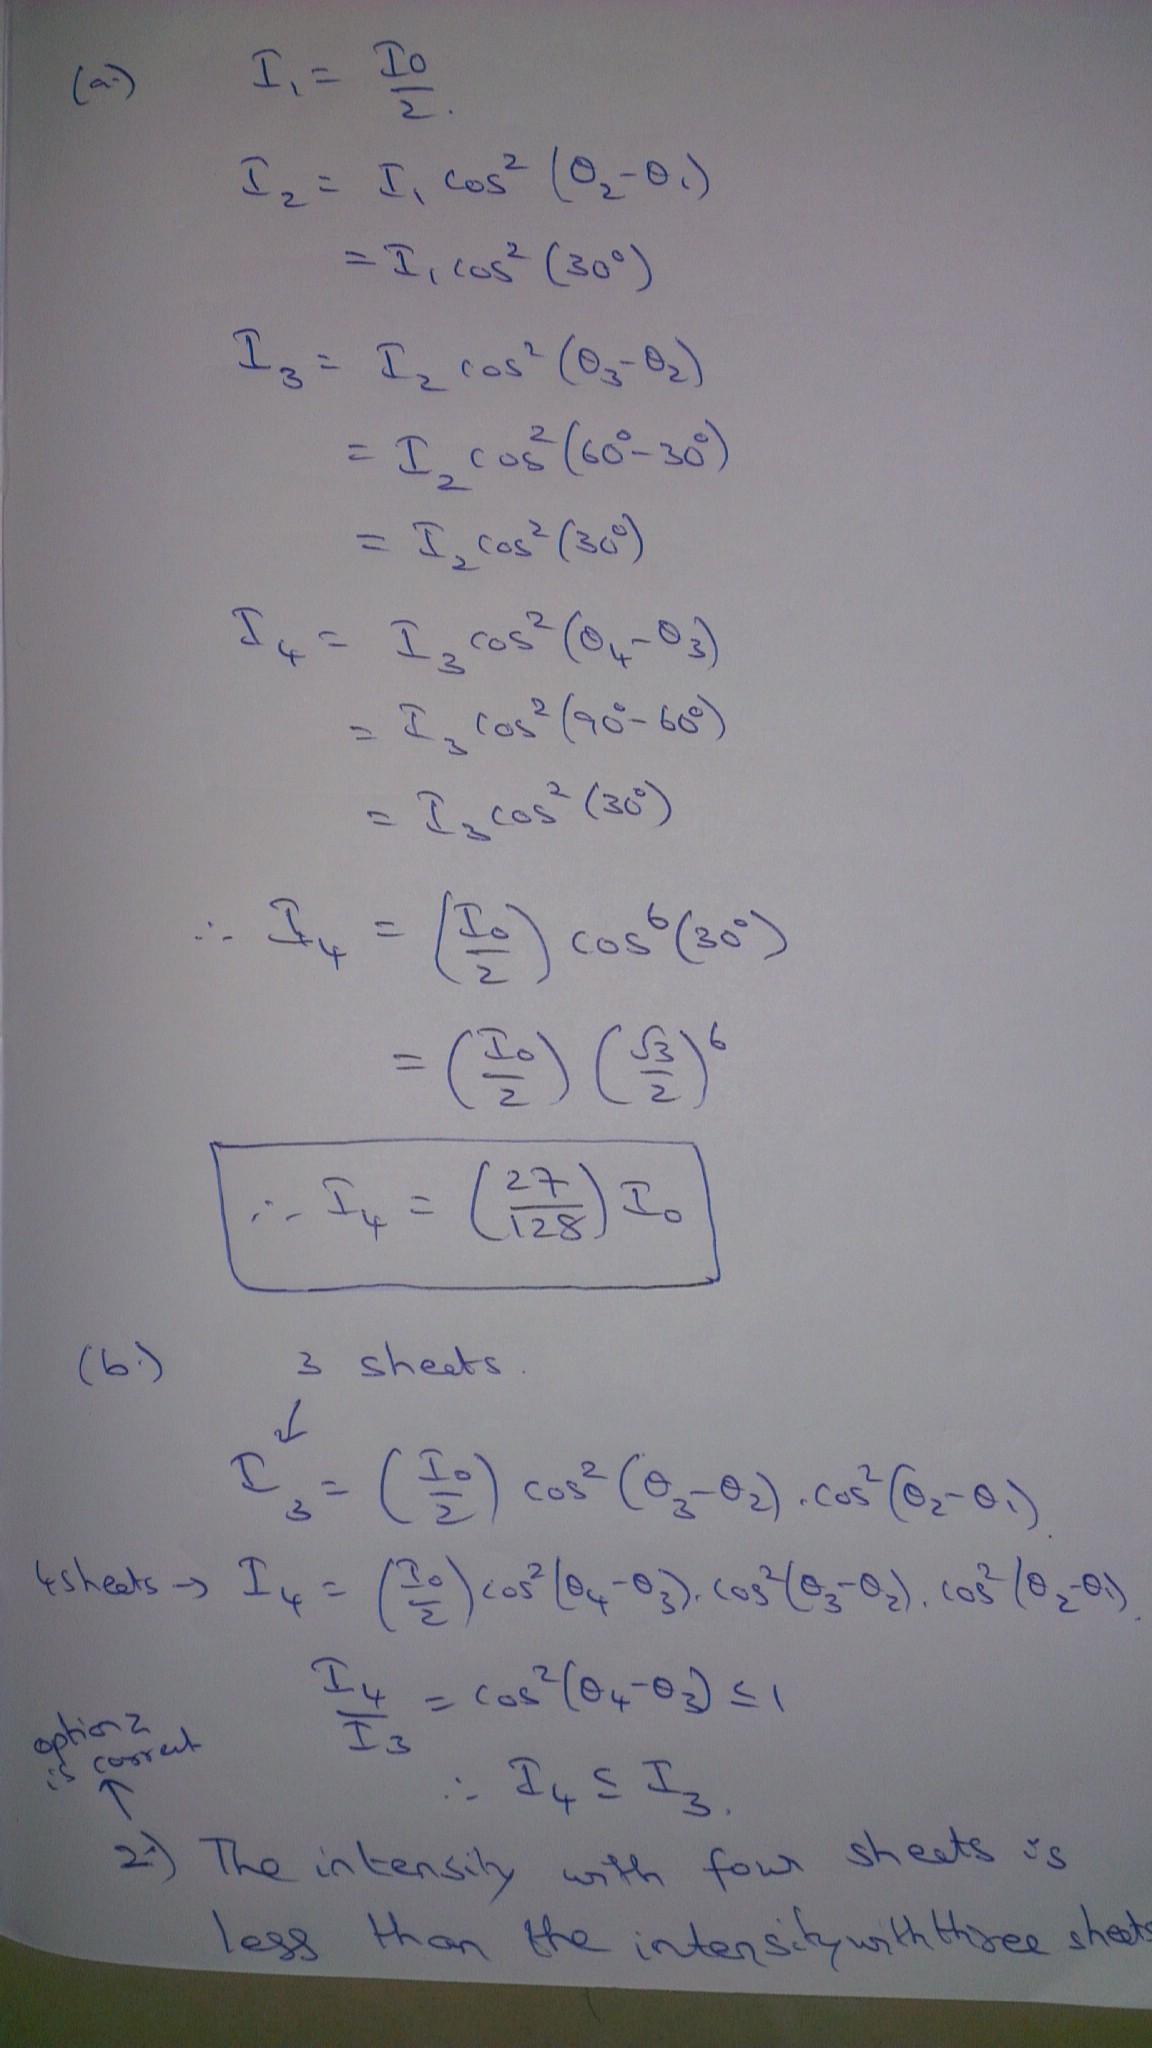 (a.) I₁ = I₀/2.
I₂ = I₁ cos² (θ₂-θ₁)
= I₁ cos² (30°)
I₃ = I₂ cos² (θ₃-θ₂)
= I₂ cos² (60°-30°)
= I₂ cos² (30°)
I₄ = I₃ cos² (θ₄-θ₃)
= I₃ cos² (90°-60°)
= I₃ cos² (30°)
∴ I₄ = (I₀/2) cos⁶ (30°)
= (I₀/2) (√3/2)⁶
∴ I₄ = (27/128) I₀
(b.) 3 sheets.
↓
I₃ = (I₀/2) cos² (θ₃-θ₂) . cos² (θ₂-θ₁).
4 sheets → I₄ = (I₀/2) cos² (θ₄-θ₃). cos² (θ₃-θ₂). cos² (θ₂-θ₁).
I₄/I₃ = cos² (θ₄-θ₃) ≤ 1
∴ I₄ ≤ I₃.
option 2
is correct
↑
2.) The intensity with four sheets is
less than the intensity with three sheets